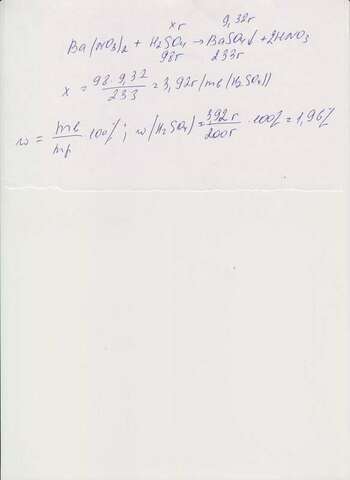 хг 9,32г
Ba(NO3)2 + H2SO4 → BaSO4↓ + 2HNO3
98г 233г
x = 98·9,32 / 233 = 3,92г (mв(H2SO4))
w = mв / mp · 100%; w(H2SO4) = 3,92г / 200г · 100% = 1,96%